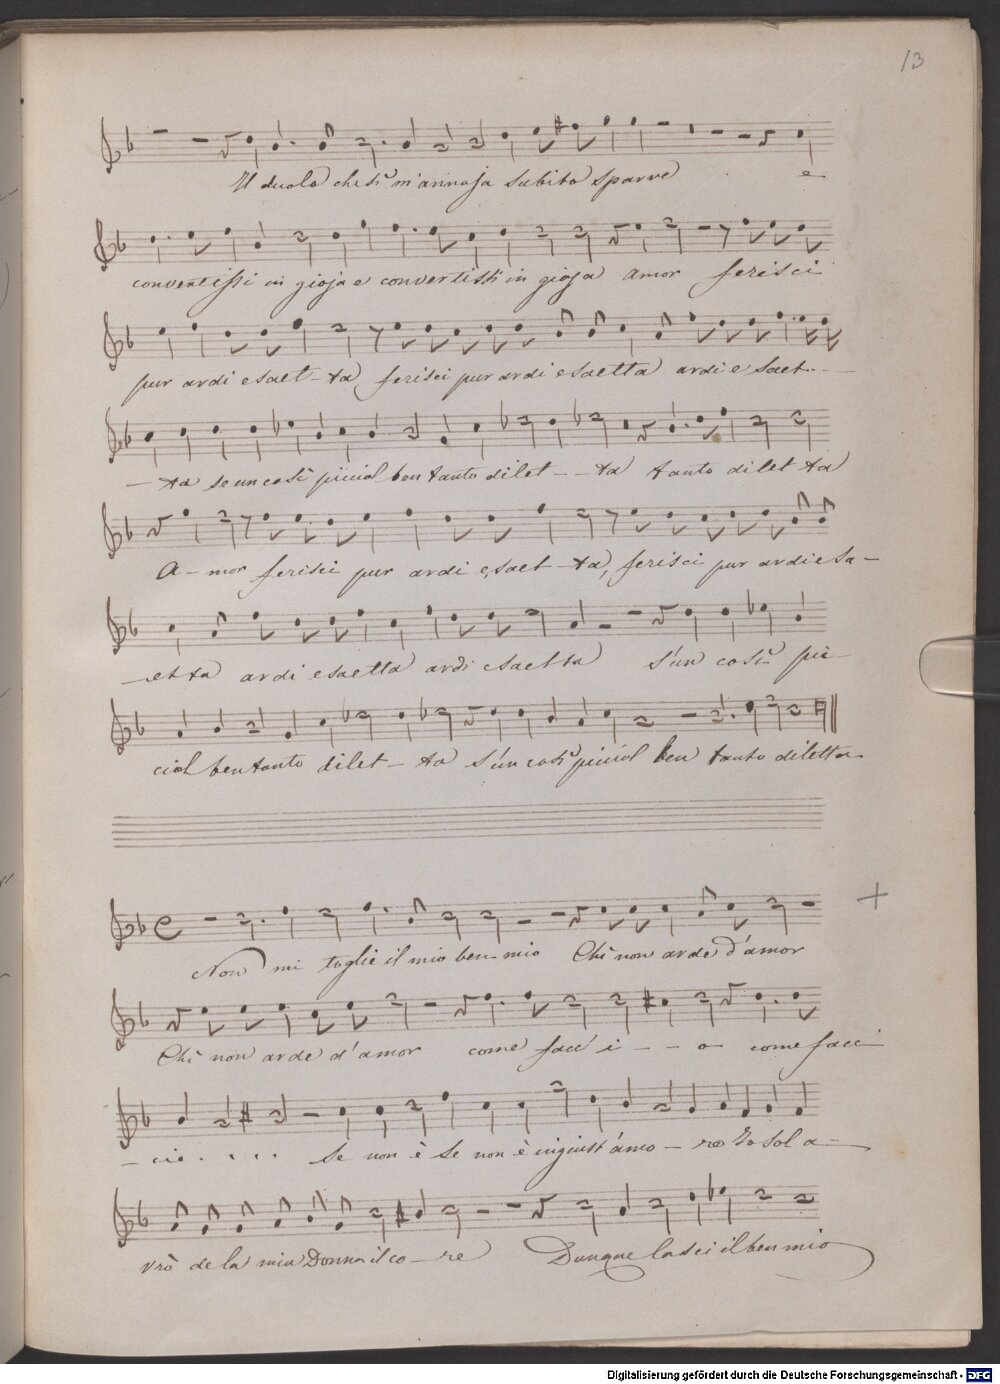 13
Il duolo che sì m'annoja subito sparve e
convertissi in gioja e convertisti in gioja amor ferisci
pur ardi e saet-ta ferisci pur ardi e saetta ardi e saet---
-ta se un così picciol ben tanto dilet--ta tanto diletta
A-mor ferisci pur ardi e saet-ta, ferisci pur ardi e sa-
-etta ardi e saetta ardi e saetta s'un così pic-
ciol ben tanto dilet-ta s'un così picciol ben tanto diletta
Non mi toglie il mio ben-mio Chi non arde d'amor
Chi non arde d'amor come facc'i--o come facci
-cio.... Se non è se non è ingiust'amo-re Io sol a-
vrò de la mia Donna il co-re Dunque lasci il ben mio
Digitalisierung gefördert durch die Deutsche Forschungsgemeinschaft - DFG